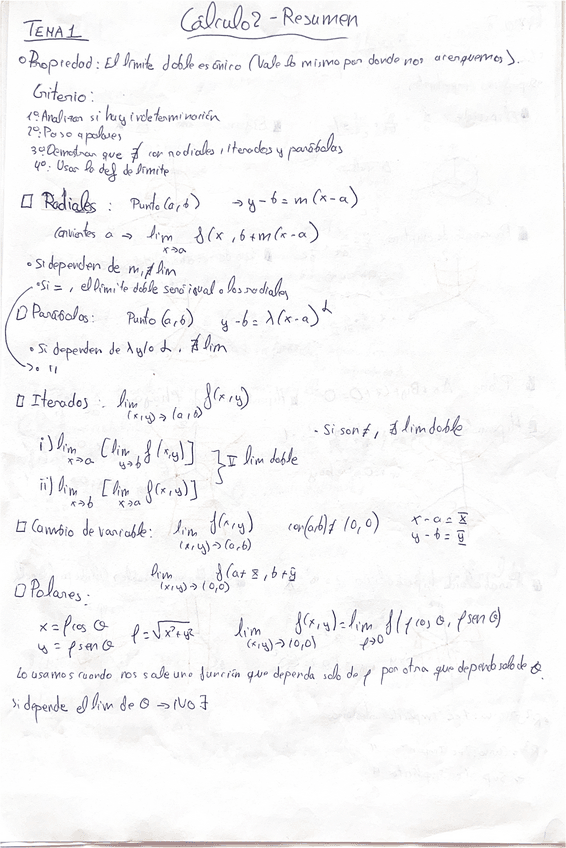 Cálculo 2 - Resumen
TEMA 1
Propiedad: El límite doble es único (Vale lo mismo por donde nos acerquemos).
Criterio:
1º Analizar si hay indeterminación
2º Paso a polares
3º Demostrar que ∄ con radiales, iterados y parábolas
4º: Usar la def de límite
□ Radiales: Punto (a,b) → y-b = m(x-a)
lim x→a f(x, b+m(x-a)
• Si dependen de m, ∄ lim
• Si =, el límite doble será igual a los radiales
□ Parábolas: Punto (a,b) y-b = λ(x-a)^α
• Si dependen de λ y/o α, ∄ lim
→ • "
□ Iterados: lim (x,y)→(a,b) f(x,y)
- Si son ≠, ∄ lim doble
i) lim x→a [lim y→b f(x,y)] } lim doble
ii) lim x→b [lim x→a f(x,y)]
□ Cambio de variable: lim (x,y)→(a,b) f(x,y) con (a,b) ≠ (0,0) x-a = x̄
y-b = ȳ
lim (x,y)→(0,0) f(a+x̄, b+ȳ
□ Polares:
x = ρ cos θ ρ = √x²+y² lim (x,y)→(0,0) f(x,y) = lim ρ→0 f(ρ cos θ, ρ sen θ)
y = ρ sen θ
Lo usamos cuando nos sale una función que dependa solo de ρ por otra que dependa solo de θ.
Si depende el lim de θ → NO ∃